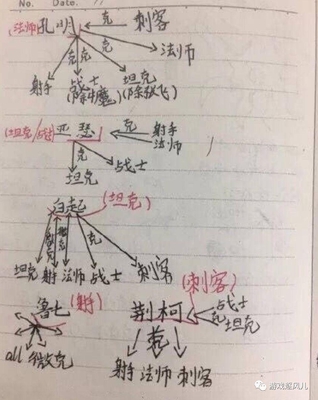 No. Date.
(法师)孔明 克 刺客
克 克 克 法师
射手 战士 坦克
(除牛魔) (除张飞)
(坦克/战士) 亚瑟 克 射手
法师
克 战士
坦克
白起 (坦克)
克
坦克 射手 法师 战士 刺客
鲁七 (射手)
all 微克
(刺客)
荆柯 克 战士
坦克
克
射手 法师 刺客
游戏追风儿